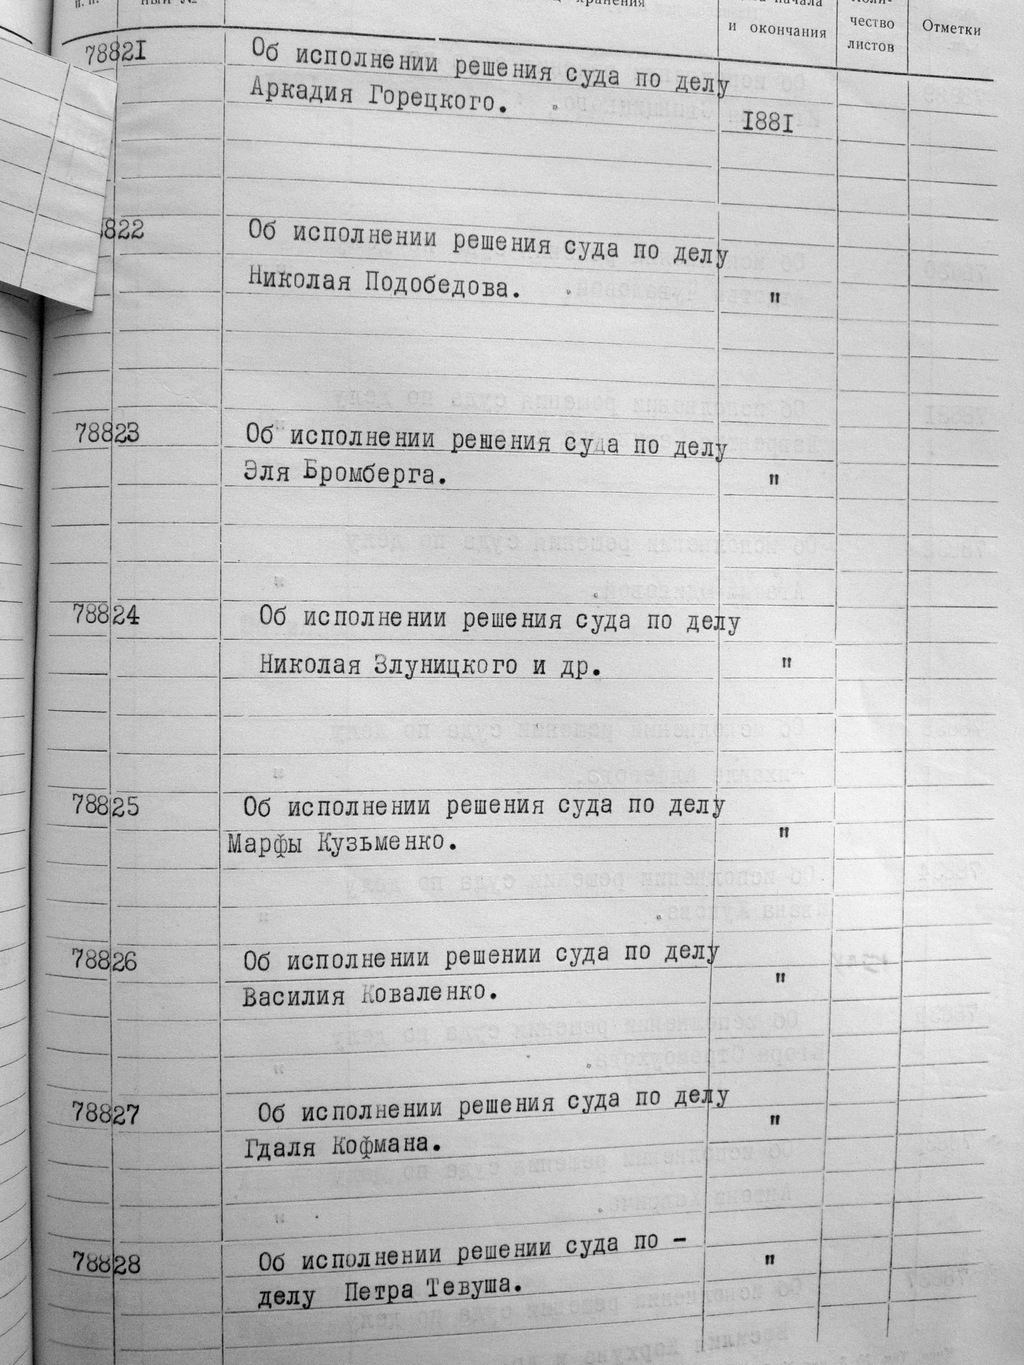 п.п. ный № хранения начала Коли-
и окончания чество листов Отметки
78821 Об исполнении решения суда по делу
Аркадия Горецкого. 1881
822 Об исполнении решения суда по делу
Николая Подобедова. "
78823 Об исполнении решения суда по делу
Эля Бромберга. "
78824 Об исполнении решения суда по делу
Николая Злуницкого и др. "
78825 Об исполнении решения суда по делу
Марфы Кузьменко. "
78826 Об исполнении решении суда по делу
Василия Коваленко. "
78827 Об исполнении решения суда по делу
Гдаля Кофмана. "
78828 Об исполнении решении суда по -
делу Петра Тевуша. "